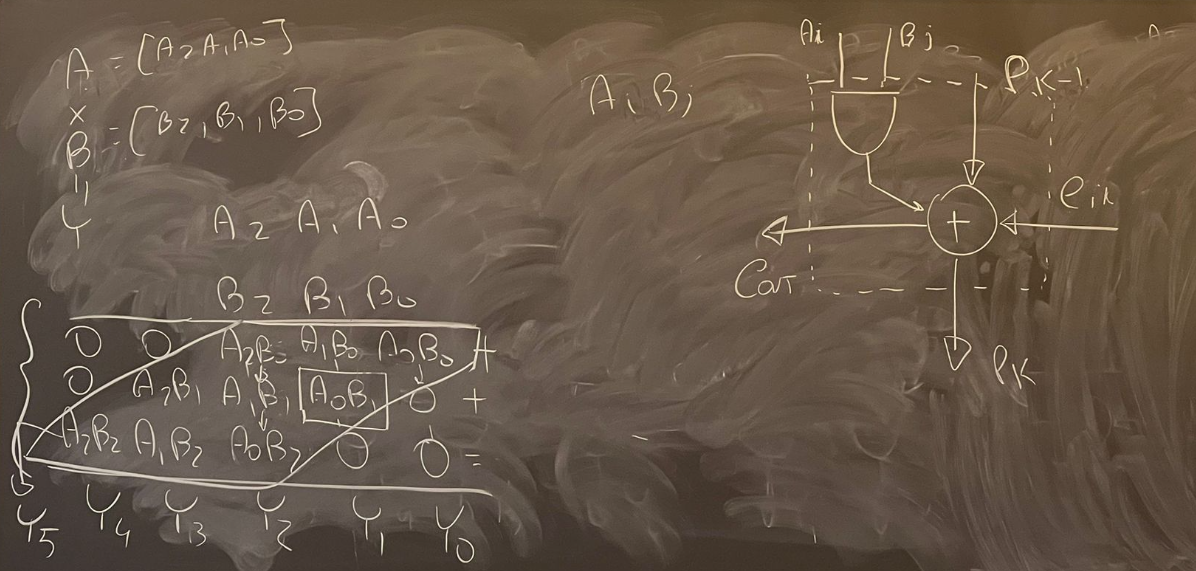 A = [A2 A1 A0]
×
B = [B2, B1, B0]
Y
A2 A1 A0
B2 B1 B0
0 0 A2B0 A1B0 A0B0 +
0 A2B1 A1B1 A0B1 0 +
A2B2 A1B2 A0B2 0 0 =
Y5 Y4 Y3 Y2 Y1 Y0
Ai Bj
Ai Bj
PK-1
+
Cin
Cout
PK